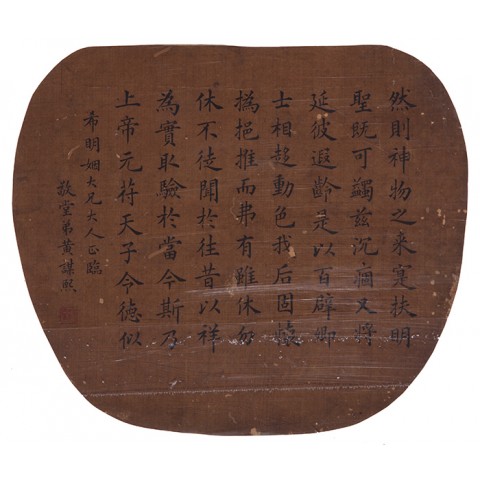 然則神物之来寔扶明
聖既可蠲兹沉痼又將
延彼遐齡是以百辟卿
士相趨動色我后固懷
撝挹推而弗有雖休勿
休不徒聞於往昔以祥
為實取驗於當今斯乃
上帝元符天子令德似
希明姻大兄大人正臨
敬堂弟黃謀